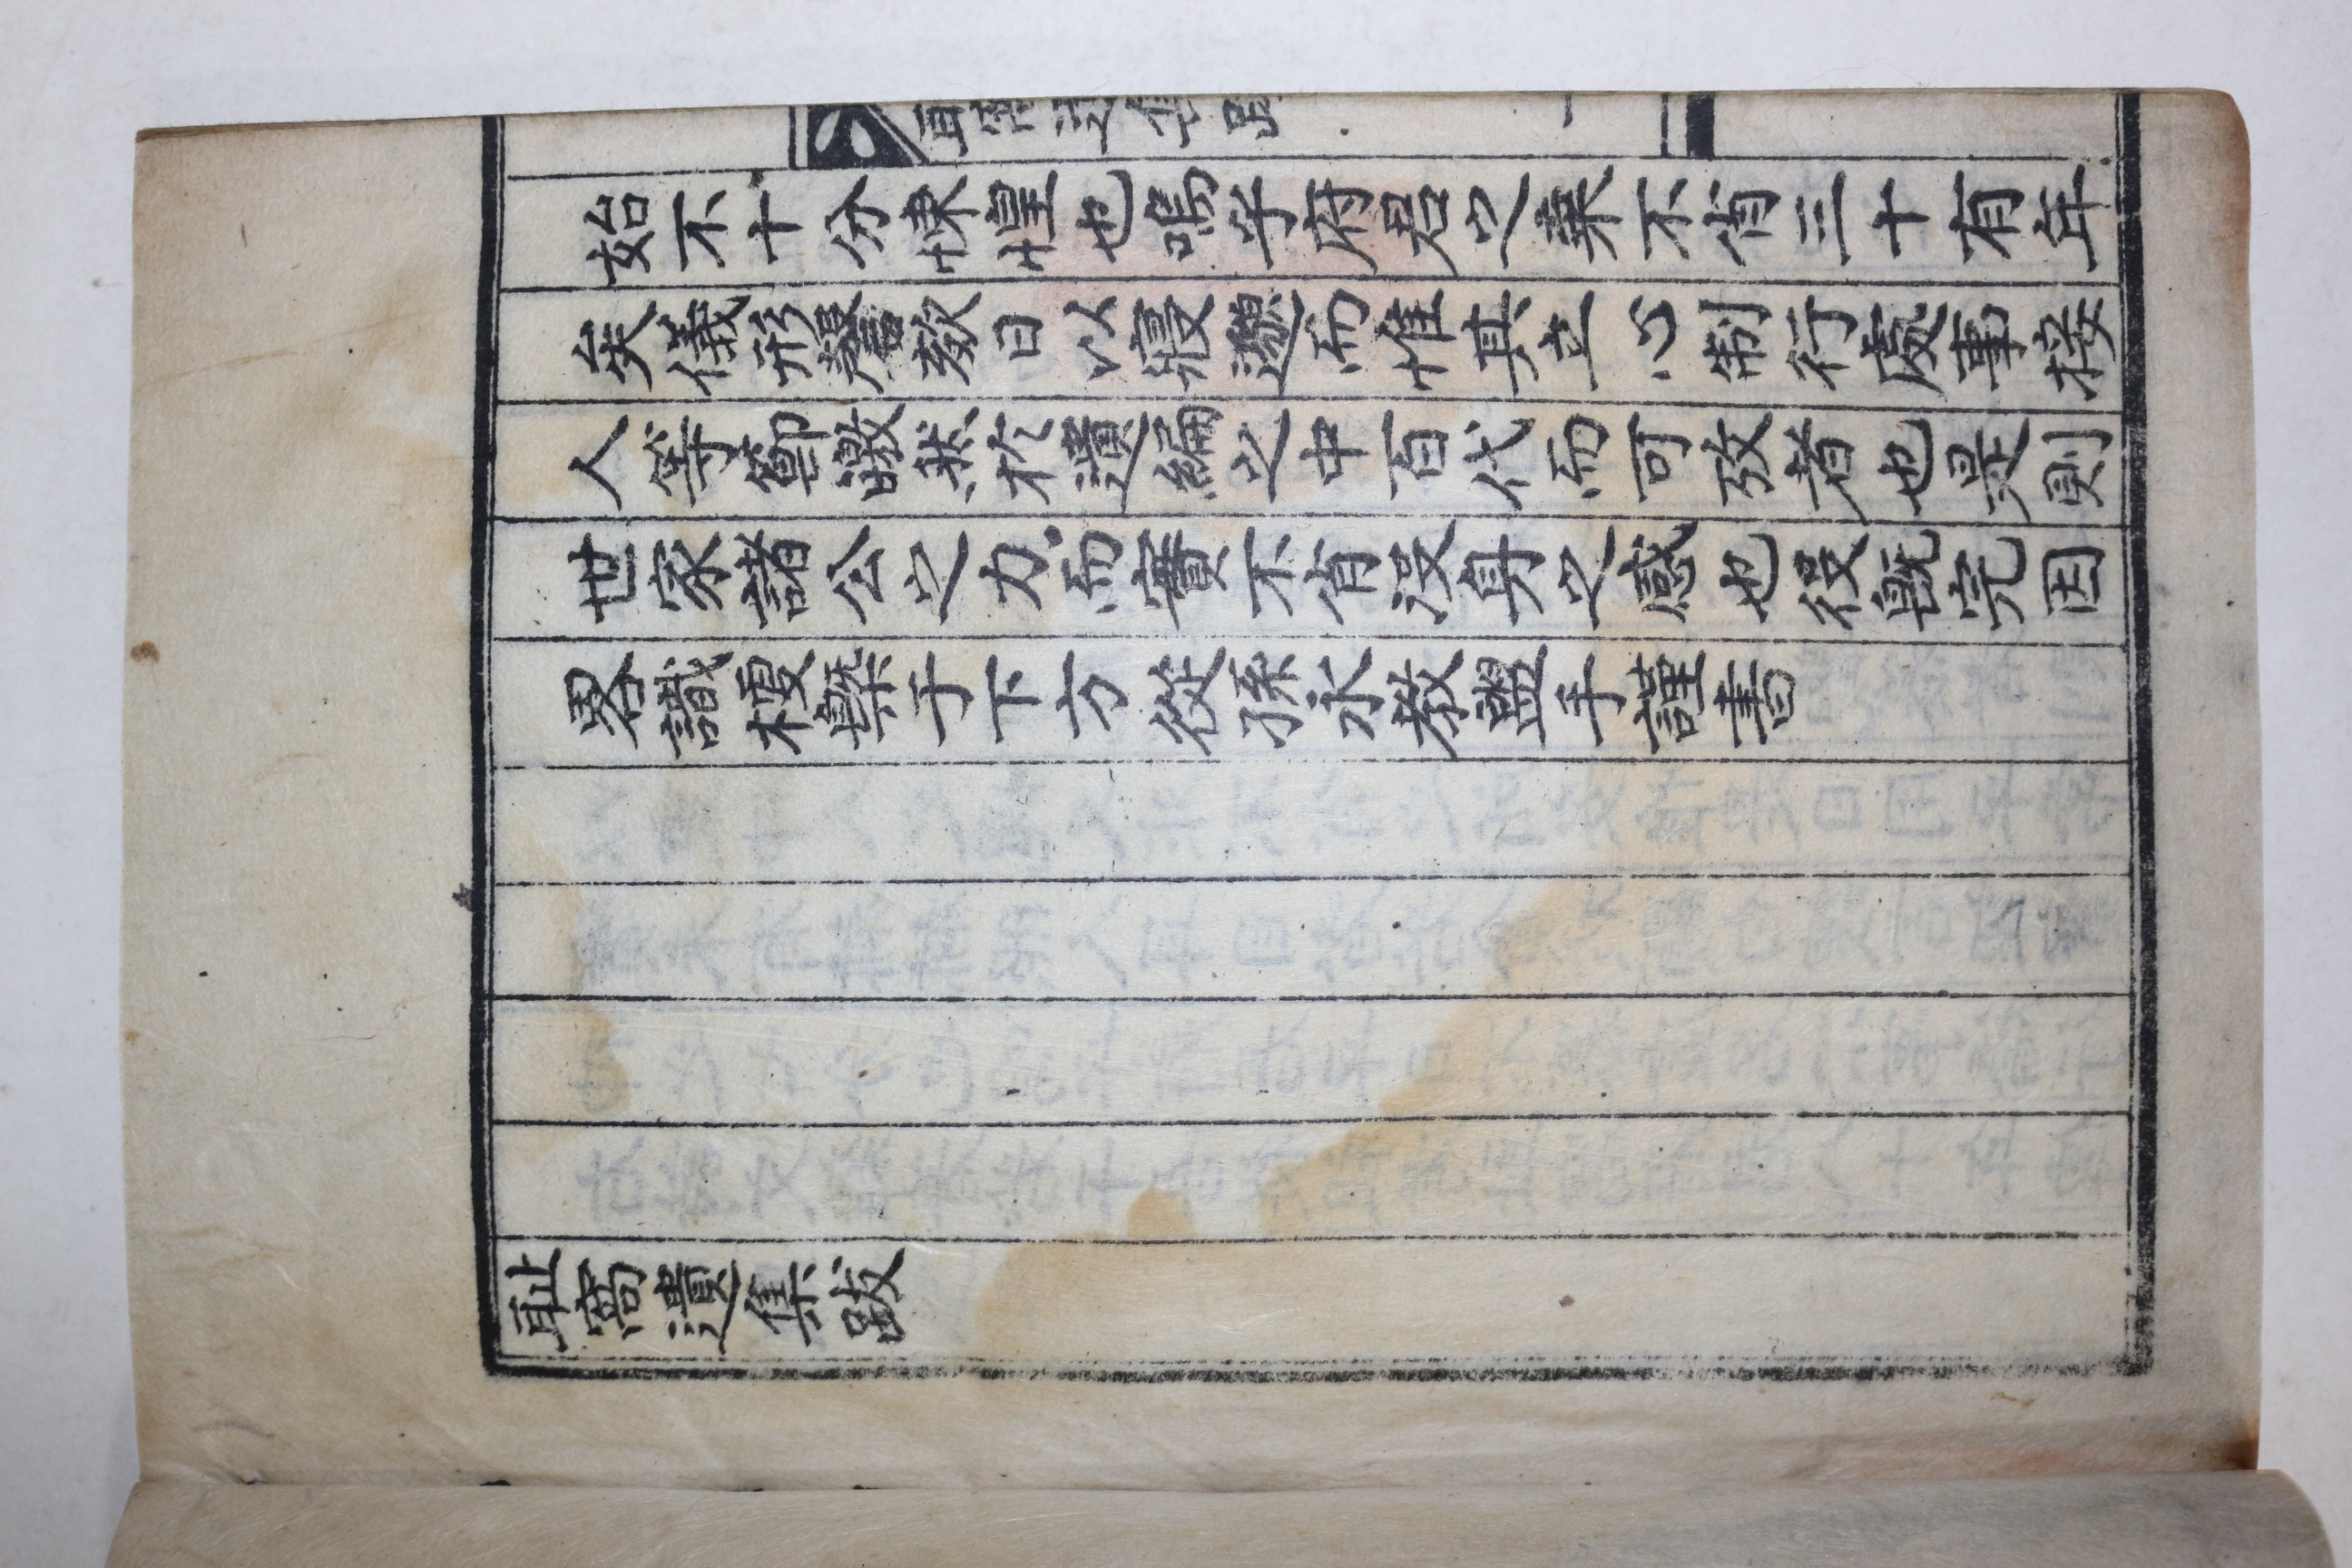 耻窩遺集跋 一
始不十分悚惶也嗚乎府君之棄不肖三十有年
矣儀形謦欬日以寢邈而惟其立心制行處事接
人等節皦然於遺編之中百代而可攷者也是則
世家諸公之力而實不肖沒身之感也役旣完因
畧識梗槩于下方從孫永教盥手謹書
耻窩遺集跋